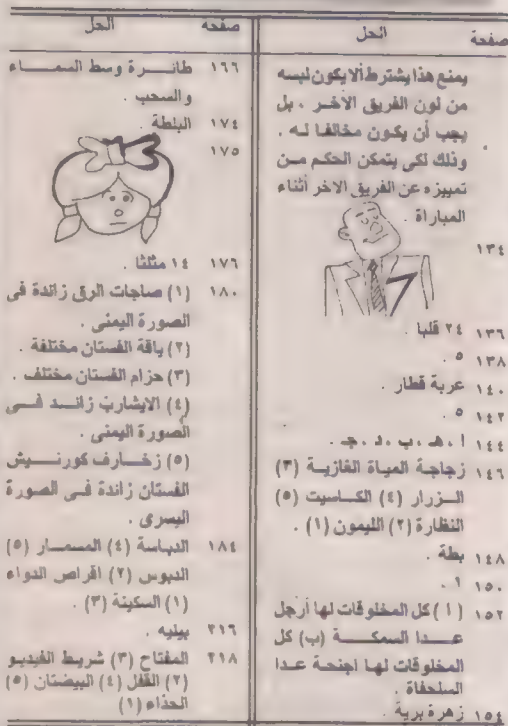 صفحة الحل
يمنع هذا يشترط ألا يكون لبسه
من لون الفريق الاخر ، بل
يجب أن يكون مخالفا له .
وذلك لكى يتمكن الحكم من
تمييزه عن الفريق الاخر أثناء
المباراة .
١٣٤
١٣٦ ٢٤ قلبا .
١٣٨ ٥ .
١٤٠ عربة قطار .
١٤٢ ٥ .
١٤٤ ا ، هـ ، ب ، د ، جـ .
١٤٦ زجاجة المياة الغازية (٣)
الزرار (٤) الكاسيت (٥)
النظارة (٢) الليمون (١) .
١٤٨ بطة .
١٥٠ ١ .
١٥٢ (أ) كل المخلوقات لها أرجل
عدا السمكة (ب) كل
المخلوقات لها اجنحة عدا
السلحفاة .
١٥٤ زهرة برية .
صفحة الحل
١٦٦ طائرة وسط السماء
والسحب .
١٧٤ البلطة .
١٧٥
١٧٦ ١٤ مثلثا .
١٨٠ (١) صاجات الرق زائدة فى
الصورة اليمنى .
(٢) ياقة الفستان مختلفة .
(٣) حزام الفستان مختلف .
(٤) الايشارب زائد فى
الصورة اليمنى .
(٥) زخارف كورنيش
الفستان زائدة فى الصورة
اليسرى .
١٨٤ الدباسة (٤) المسمار (٥)
الدبوس (٢) اقراص الدواء
(١) السكينة (٣) .
٢١٦ بيليه .
٢١٨ المفتاح (٣) شريط الفيديو
(٢) القفل (٤) البيضتان (٥)
الحذاء (١)